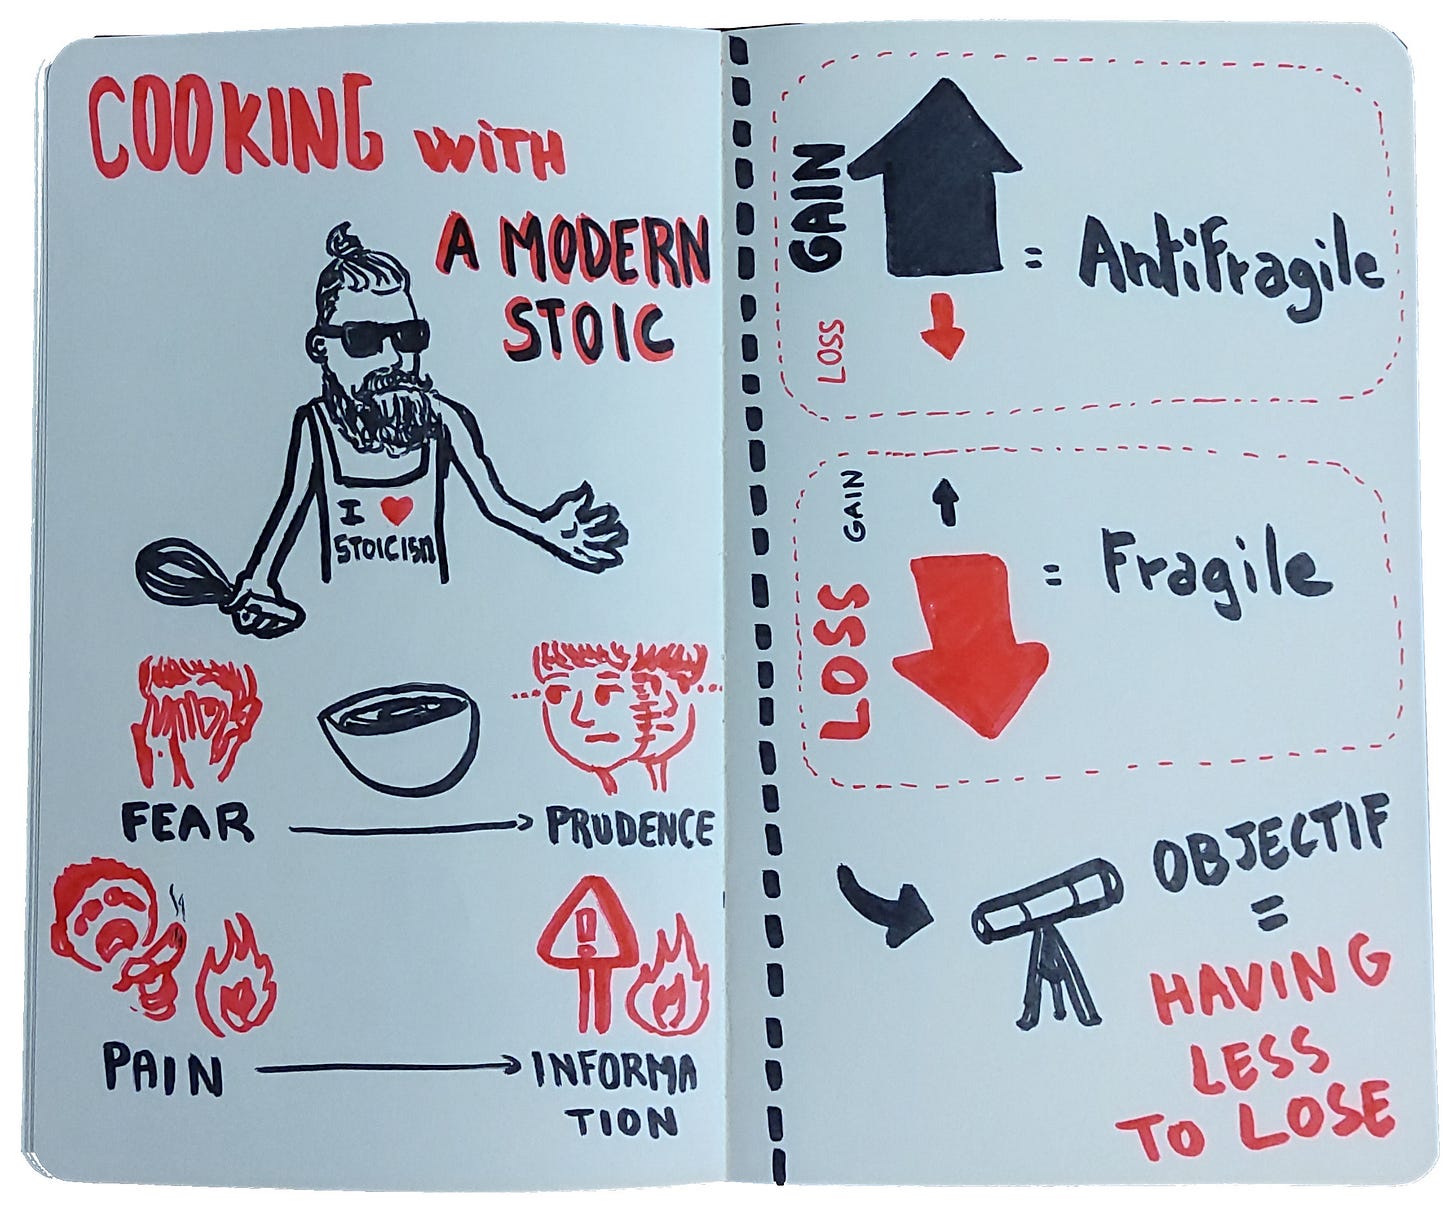 COOKING WITH
A MODERN
STOIC
I ❤
STOICISM
FEAR → PRUDENCE
!
PAIN → INFORMA
TION
GAIN
LOSS
= Antifragile
GAIN
LOSS
= Fragile
OBJECTIF
=
HAVING
LESS
TO LOSE